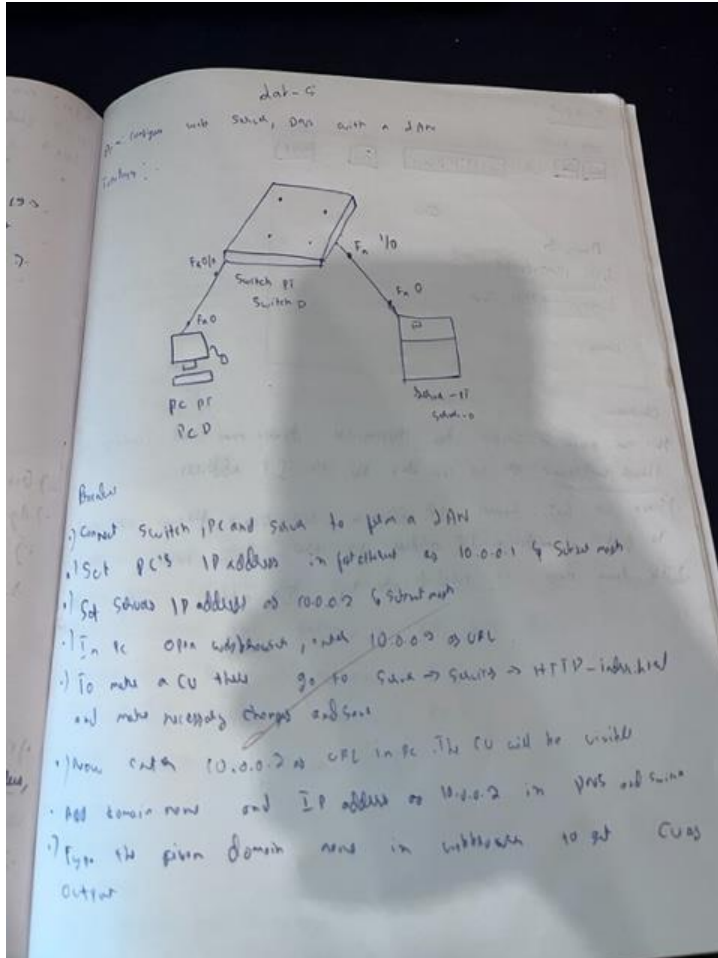 Lab-5
Aim - Configure web Server, DNS with a LAN
Topology :
Fa0/0
Fa 1/0
Switch PT
Switch 0
Fa 0
Fa0
PC PT
PC 0
Server - PT
Server-0
.) Connect Switch, PC and server to form a LAN
.) Set PC's IP address in fastethernet as 10.0.0.1 & Subnet mask
.) Set Servers IP address as 10.0.0.2 & Subnet mask
.) In PC open webbrowser, enter 10.0.0.2 as URL
.) To make a CV there go to Server → Services → HTTP - index.html
and make necessary changes and save
.) Now enter 10.0.0.2 as URL in PC. The CV will be visible
. Add domain name and IP address as 10.0.0.2 in DNS and
.) Type the given domain name in webbrowser to get CV as
output